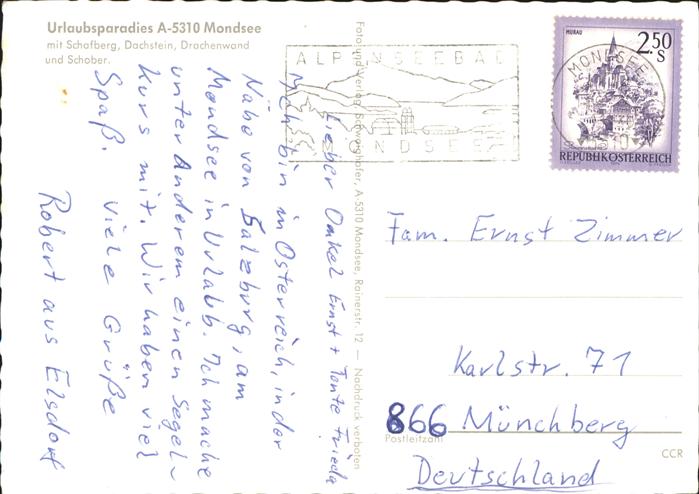 Urlaubsparadies A-5310 Mondsee
mit Schafberg, Dachstein, Drachenwand
und Schober.
Lieber Onkel Ernst + Tante Frieda
Ich bin in Österreich, in der
Nähe von Salzburg, am
Mondsee in Urlabb. Ich mache
unter Anderem einen Segel-
kurs mit. Wir haben viel
Spaß. Viele Grüße
Robert aus Elsdorf
Foto und Verlag Schwaighofer, A-5310 Mondsee, Rainerstr. 12 — Nachdruck verboten
ALPENSEEBAD
MONDSEE
MURAU
2.50
S
MONDSEE
5310
REPUBLIK ÖSTERREICH
Fam. Ernst Zimmer
Karlstr. 71
866 Münchberg
Postleitzahl
CCR
Deutschland